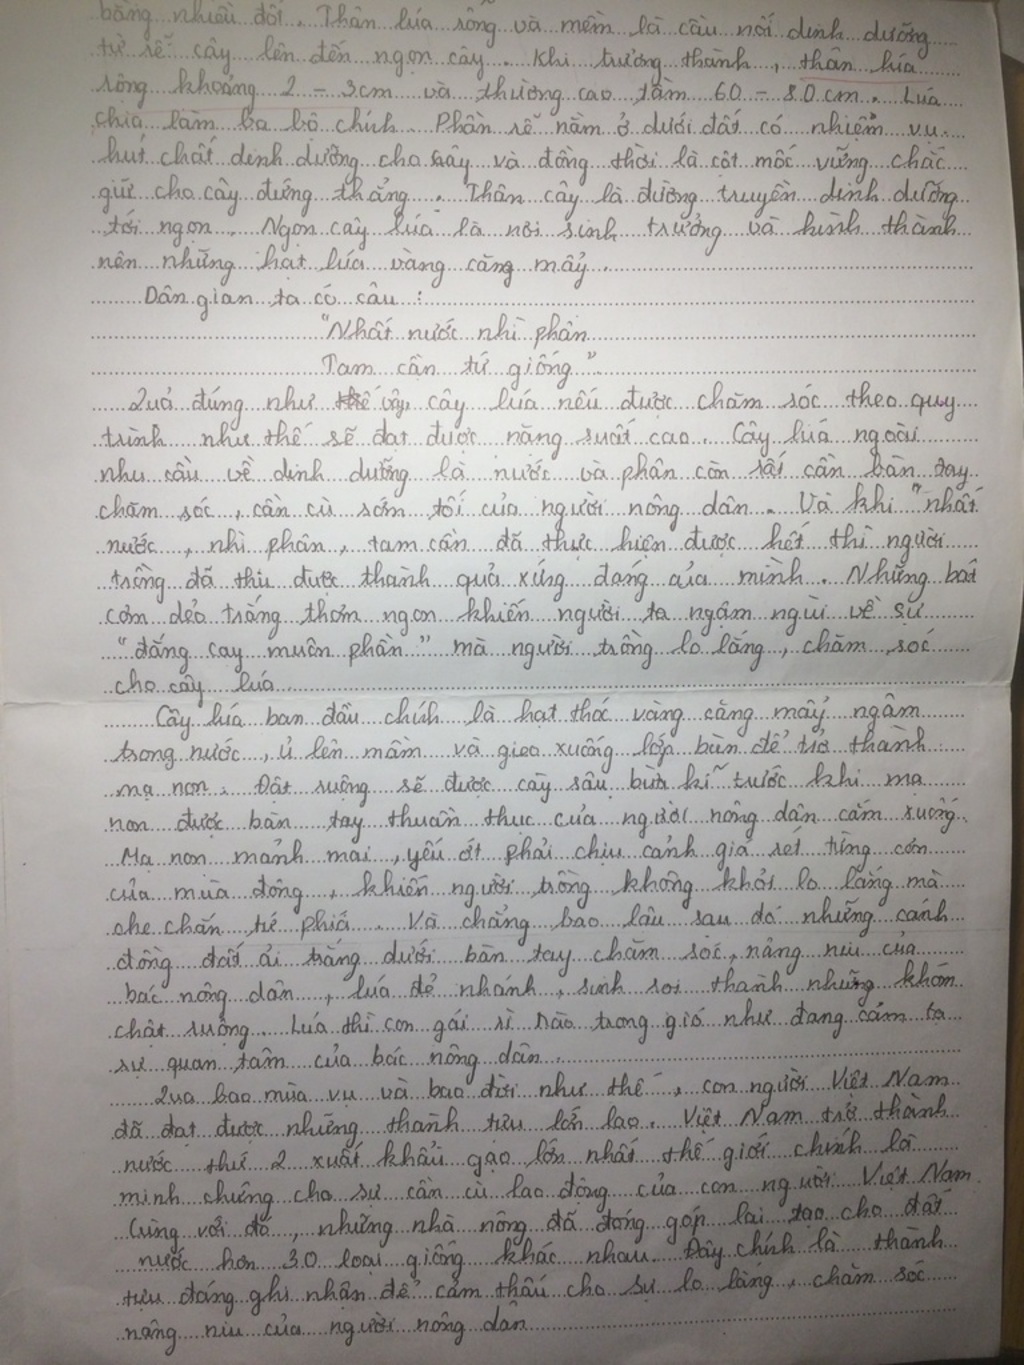 bằng nhiều đốt. Thân lúa rỗng và mềm là cầu nối dinh dưỡng
từ rễ cây lên đến ngọn cây. Khi trưởng thành, thân lúa
rộng khoảng 2 - 3cm và thường cao tầm 60 - 80cm. Lúa
chia làm ba bộ chính. Phần rễ nằm ở dưới đất có nhiệm vụ
hút chất dinh dưỡng cho cây và đồng thời là cột mốc vững chắc
giữ cho cây đứng thẳng. Thân cây là đường truyền dinh dưỡng
tới ngọn. Ngọn cây lúa là nơi sinh trưởng và hình thành
nên những hạt lúa vàng căng mẩy.
Dân gian ta có câu :
"Nhất nước nhì phân
Tam cần tứ giống"
Quả đúng như vậy, cây lúa nếu được chăm sóc theo quy
trình như thế sẽ đạt được năng suất cao. Cây lúa ngoài
nhu cầu về dinh dưỡng là nước và phân còn rất cần bàn tay
chăm sóc, cần cù sớm tối của người nông dân. Và khi "nhất
nước, nhì phân, tam cần đã thực hiện được hết thì người
trồng đã thu được thành quả xứng đáng của mình. Những bát
cơm dẻo trắng thơm ngon khiến người ta ngậm ngùi về sự
"đắng cay muôn phần" mà người trồng lo lắng, chăm sóc
cho cây lúa.
Cây lúa ban đầu chính là hạt thóc vàng căng mẩy ngâm
trong nước, ủ lên mầm và gieo xuống lớp bùn để trở thành
mạ non. Đất ruộng sẽ được cày sâu bừa kĩ trước khi mạ
non được bàn tay thuần thục của người nông dân cắm xuống.
Mạ non mảnh mai, yếu ớt phải chịu cảnh giá rét từng cơn
của mùa đông, khiến người trồng không khỏi lo lắng mà
che chắn tứ phía. Và chẳng bao lâu sau đó những cánh
đồng đất ải trắng dưới bàn tay chăm sóc, nâng niu của
bác nông dân, lúa đẻ nhánh, sinh sôi thành những khóm
chật ruộng. Lúa thì con gái rì rào trong gió như đang cảm tạ
sự quan tâm của bác nông dân.
Qua bao mùa vụ và bao đời như thế, con người Việt Nam
đã đạt được những thành tựu lớn lao. Việt Nam trở thành
nước thứ 2 xuất khẩu gạo lớn nhất thế giới chính là
minh chứng cho sự cần cù lao động của con người Việt Nam.
Cùng với đó, những nhà nông đã đóng góp lai tạo cho đất
nước hơn 30 loại giống khác nhau. Đây chính là thành
tựu đáng ghi nhận để cảm thấu cho sự lo lắng, chăm sóc
nâng niu của người nông dân